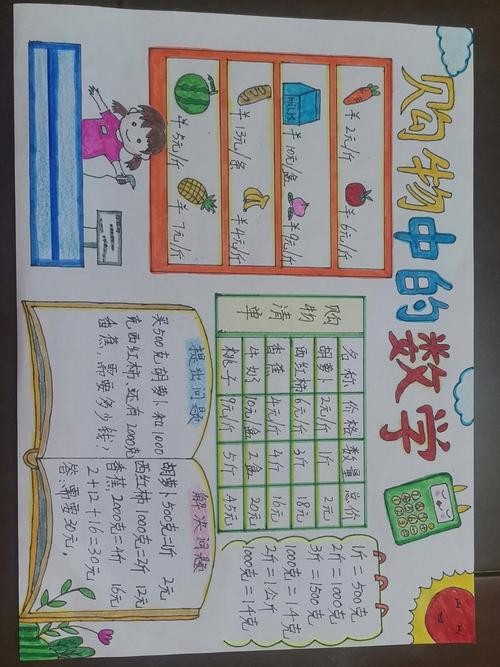 购物中的数学
¥2元/斤
¥6元/斤
MILK
¥10元/盒
¥9元/斤
¥13元/条
¥4元/斤
¥5元/斤
¥7元/斤
购物清单
名称 价格 数量 总价
胡萝卜 2元/斤 1斤 2元
西红柿 6元/斤 3斤 18元
香蕉 4元/斤 4斤 16元
牛奶 10元/盒 2盒 20元
桃子 9元/斤 5斤 45元
1斤=500克
2斤=1000克
3斤=1500克
1000克=1千克
2斤=1公斤
1000克=1千克
提出问题
买500克胡萝卜和1000
克西红柿、还有2000克
香蕉,需要多少钱?
解决问题
胡萝卜500克=1斤 2元
西红柿1000克=2斤 12元
香蕉2000克=4斤 16元
2+12+16=30元
答:需要30元。